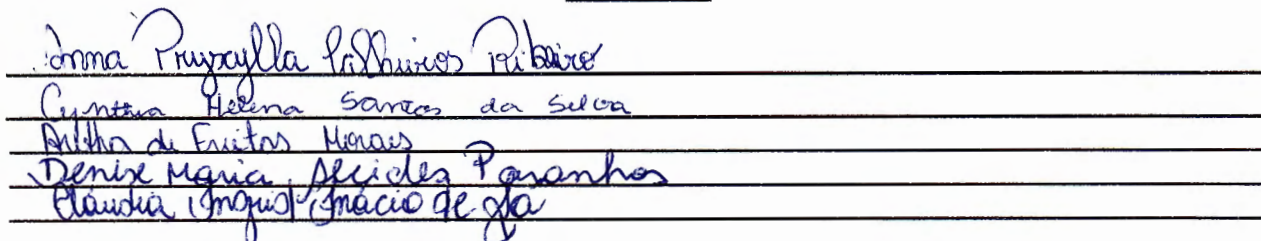 Anna Pryscylla Palhares Ribeiro
Cynthia Helena Santos da Silva
de Freitas Morais
Denise Maria Alcides Paranhos
Claudia Ingrid Inácio de Sá